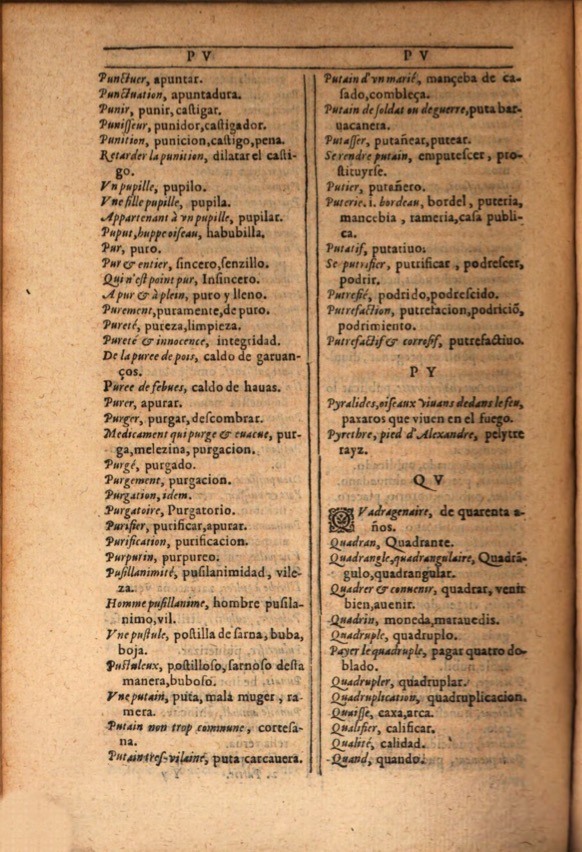 P V
Punctuer, apuntar.
Punctuation, apuntadura.
Punir, punir, caſtigar.
Puniſſeur, punidor,caſtigador.
Punition, punicion,caſtigo,pena.
Retarder la punition, dilatar el caſti-
go.
Vn pupille, pupilo.
Vne fille pupille, pupila.
Appartenant à vn pupille, pupilar.
Puput, huppe oiſeau, habubilla.
Pur, puro.
Pur & entier, ſincero,ſenzillo.
Qui n'eſt point pur, Inſincero.
A pur & à plein, puro y lleno.
Purement,puramente,de puro.
Pureté, pureza,limpieza.
Pureté & innocence, integridad.
De la puree de pois, caldo de garuan-
ços.
Puree de febues, caldo de hauas.
Purer, apurar.
Purger, purgar,deſcombrar.
Medicament qui purge & euacue, pur-
ga,melezina, purgacion.
Purgé, purgado.
Purgement, purgacion.
Purgation, idem.
Purgatoire, Purgatorio.
Purifier, purificar,apurar.
Purification, purificacion.
Purpurin, purpureo.
Puſillanimité, puſilanimidad, vile-
za.
Homme puſillanime, hombre puſila-
nimo,vil.
Vne puſtule, poſtilla de ſarna, buba,
boja.
Puſtuleux, poſtilloſo, ſarnoſo deſta
manera,buboſo.
Vne putain, puta, mala muger, ra-
mera.
Putain non trop commune, corteſa-
na.
Putain treſ-vilaine, puta carcauera.
P V
Putain d'vn marié, mançeba de ca-
ſado,combleça.
Putain de ſoldat ou de guerre,puta bar-
uacanera.
Putaſſer, putañear,putear.
Se rendre putain, emputeſcer, pro-
ſtituyrſe.
Putier, putañero.
Puterie. i. bordeau, bordel, puteria,
mancebia, rameria,caſa publi-
ca.
Putatif, putatiuo.
Se putrifier, putrificar, podreſcer,
podrir.
Putrefié, podrido,podreſcido.
Putrefaction, putrefacion,podriciõ,
podrimiento.
Putrefactif & corroſif, putrefactiuo.
P Y
Pyralides,oiſeaux viuans dedans le feu,
paxaros que viuen en el fuego.
Pyrethre, pied d'Alexandre, pelytre
rayz.
Q V
QVadragenaire, de quarenta a-
ños.
Quadran, Quadrante.
Quadrangle,quadrangulaire, Quadrã-
gulo,quadrangular.
Quadrer & conuenir, quadrar, venir
bien,auenir.
Quadrin, moneda,marauedis.
Quadruple, quadruplo.
Payer le quadruple, pagar quatro do-
blado.
Quadrupler, quadruplar.
Quadruplication, quadruplicacion.
Quaiſſe, caxa,arca.
Qualifier, calificar.
Qualité, calidad.
Quand, quando.